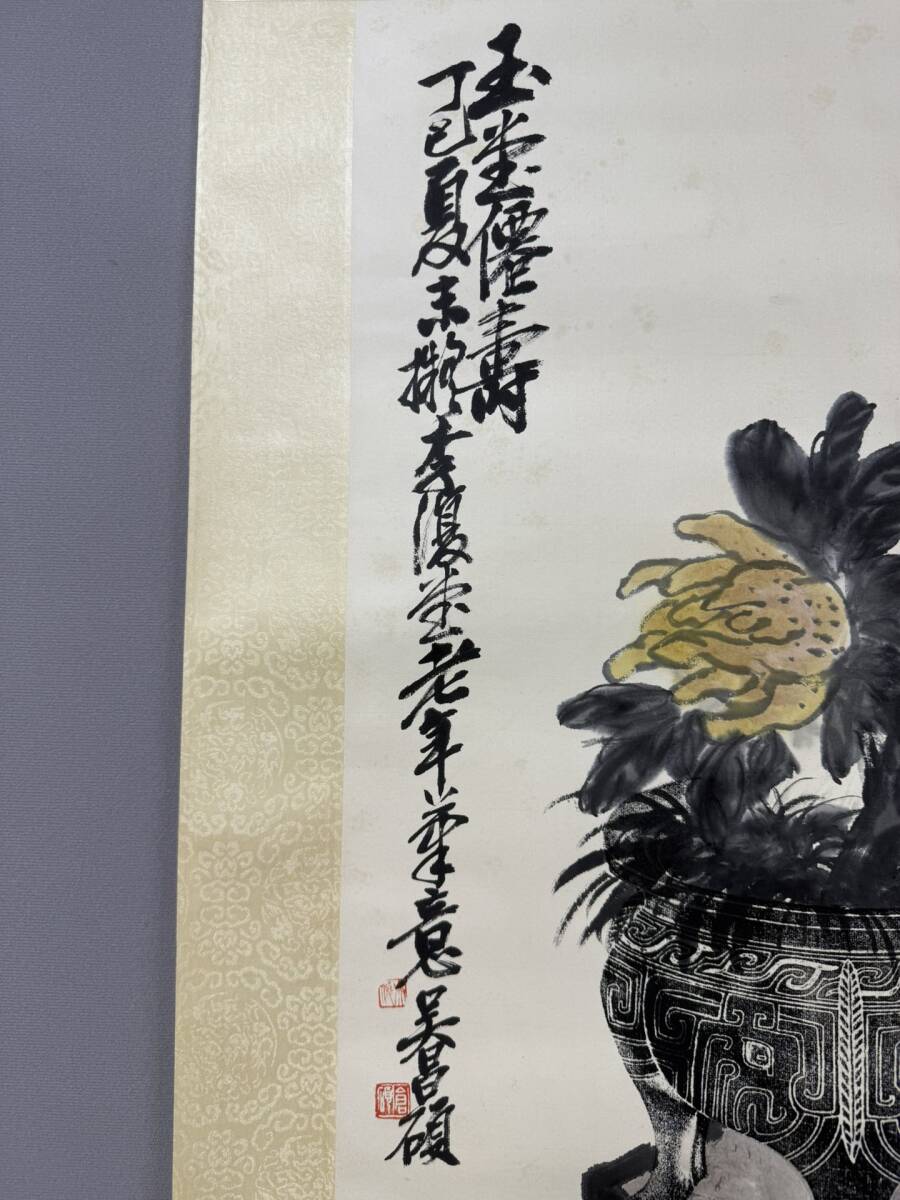 玉堂僊壽
丁巳夏末擬李復堂老年筆意吳昌碩